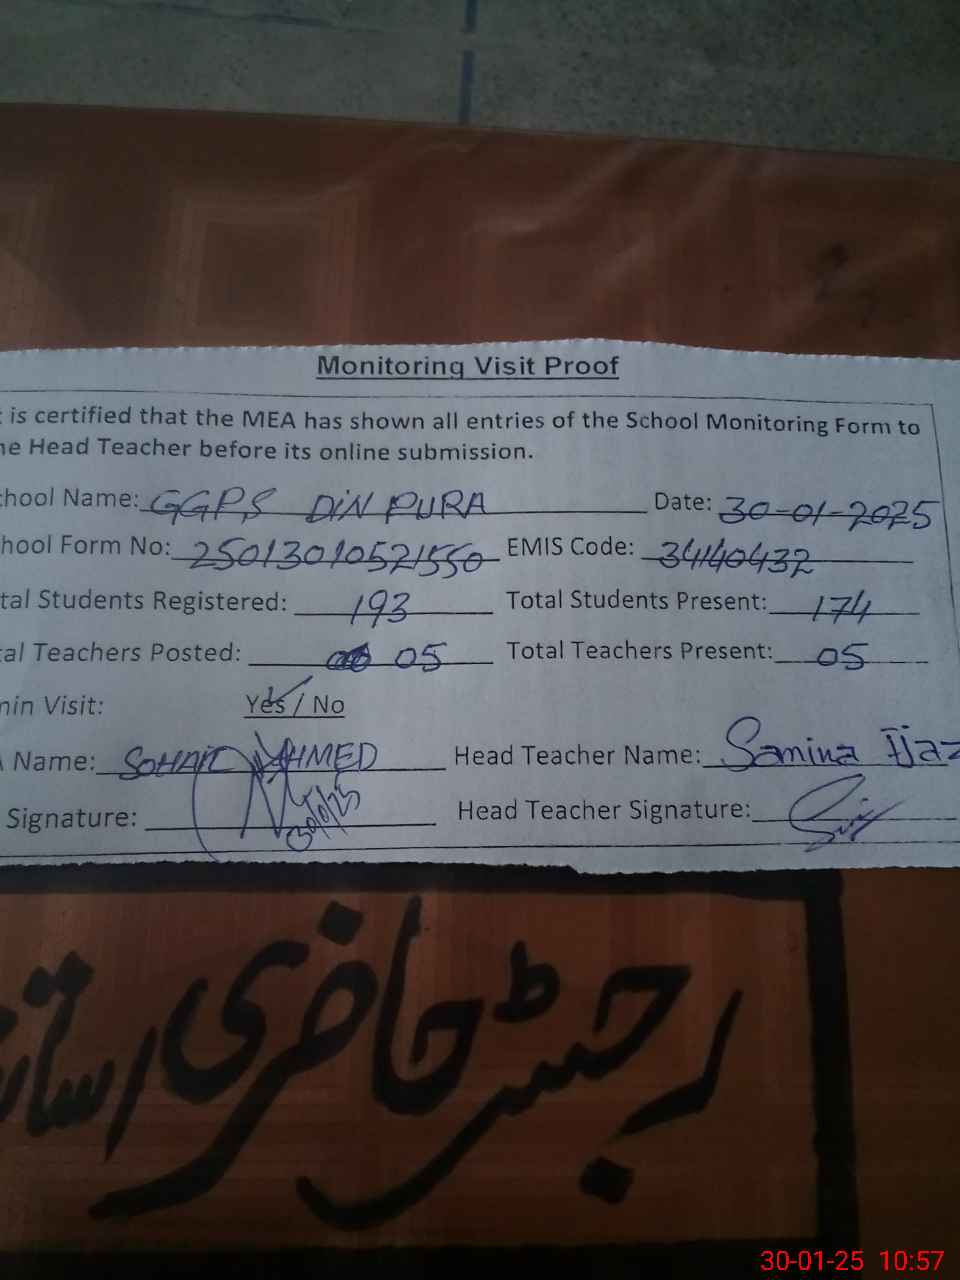 Monitoring Visit Proof
is certified that the MEA has shown all entries of the School Monitoring Form to
he Head Teacher before its online submission.
chool Name: GGPS DIN PURA Date: 30-01-2025
hool Form No: 25013010521550 EMIS Code: 34140432
tal Students Registered: 193 Total Students Present: 174
al Teachers Posted: 05 Total Teachers Present: 05
min Visit: Yes / No
Name: SOHAIL AHMED Head Teacher Name: Samina Ijaz
Signature: 30/1/25 Head Teacher Signature:
رجسٹر حاضری اساتذہ
30-01-25 10:57